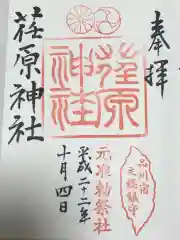 奉拝
荏原
神社
元准勅祭社
品川宿
之総鎮守
平成二十二年
十月四日
荏原神社